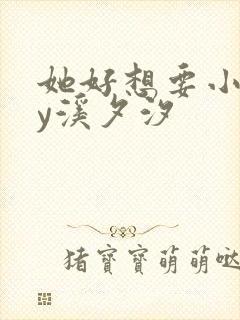 她好想要小
y溪夕汐
猪寶寶萌萌哒